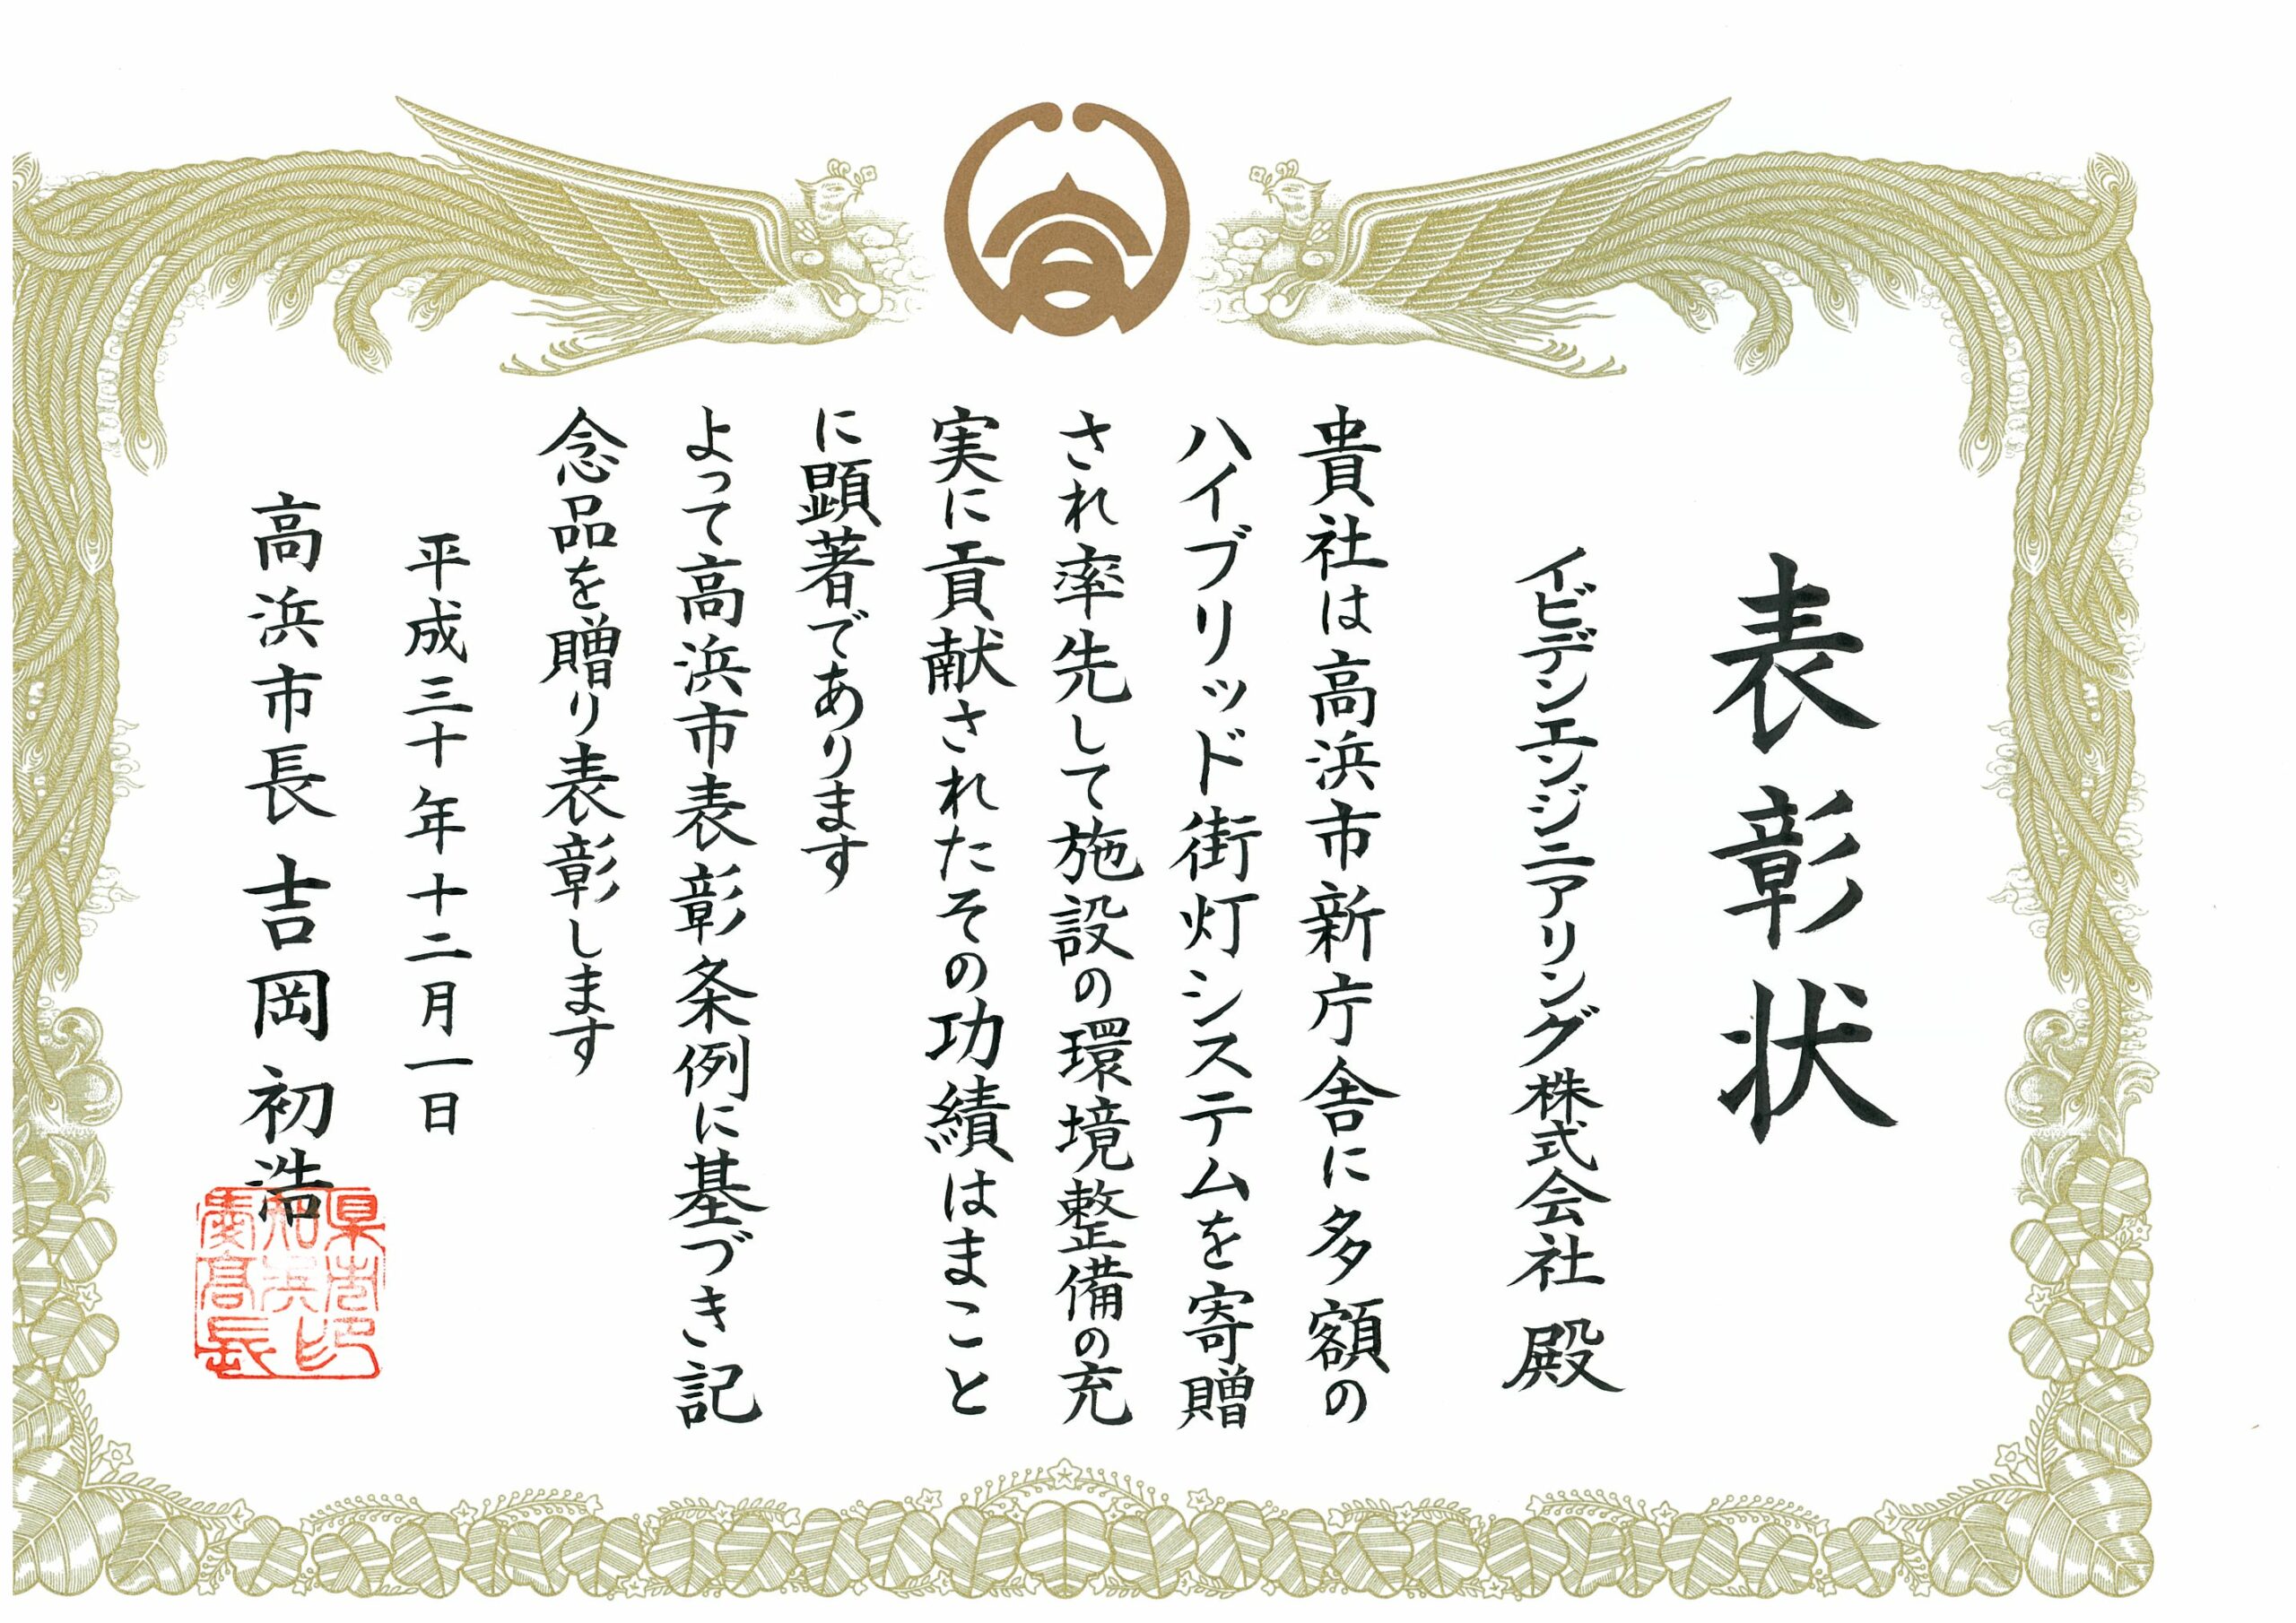 表彰状
イビデンエンジニアリング株式会社 殿
貴社は高浜市新庁舎に多額の
ハイブリッド街灯システムを寄贈
され率先して施設の環境整備の充
実に貢献されたその功績はまこと
に顕著であります
よって高浜市表彰条例に基づき記
念品を贈り表彰します
平成三十年十二月一日
高浜市長 吉岡初浩